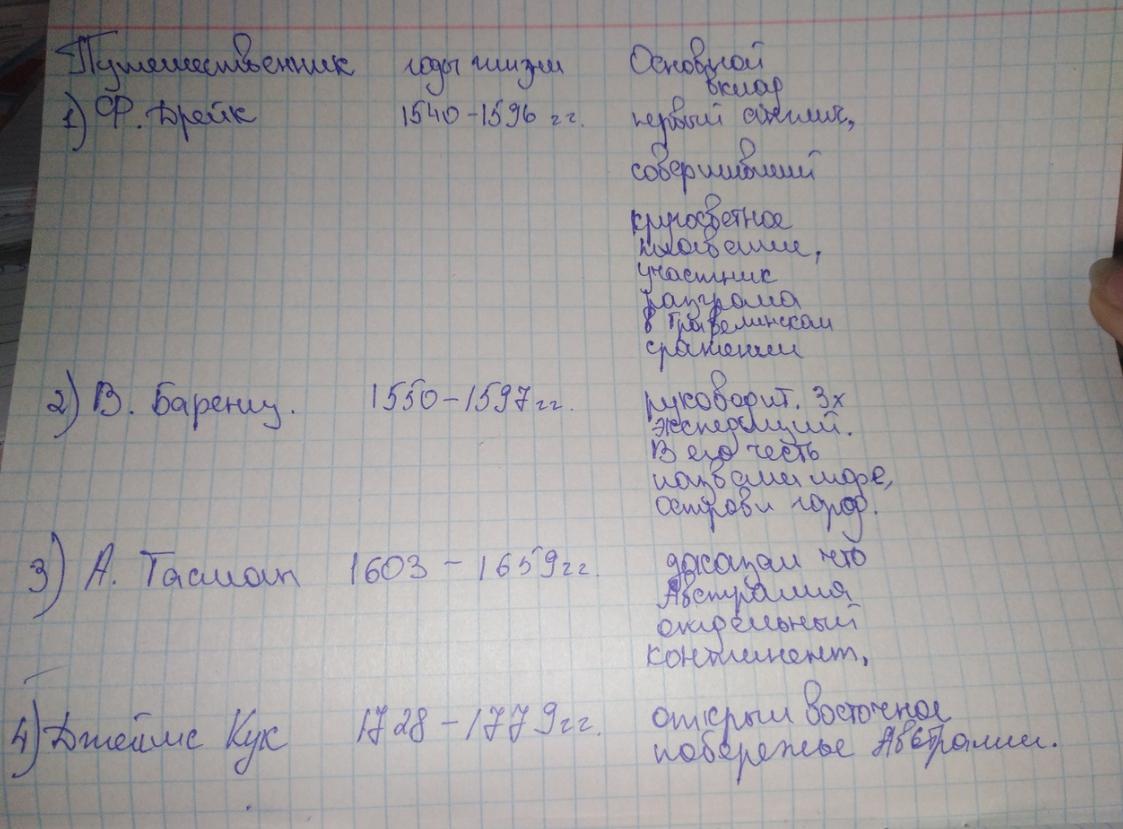 Путешественник годы жизни Основной
вклад
1) Ф. Дрейк 1540-1596 гг. первый англич,
совершивший
кругосветное
плавание,
участник
разгрома
в Гравелинском
сражении
2) В. Баренц. 1550-1597гг. руководит. 3х
экспедиций.
В его честь
названы море,
остров и город.
3) А. Тасман 1603-1659гг. доказал что
Австралия
отдельный
континент,
4) Джеймс Кук 1728-1779гг. открыл восточное
побережье Австралии.